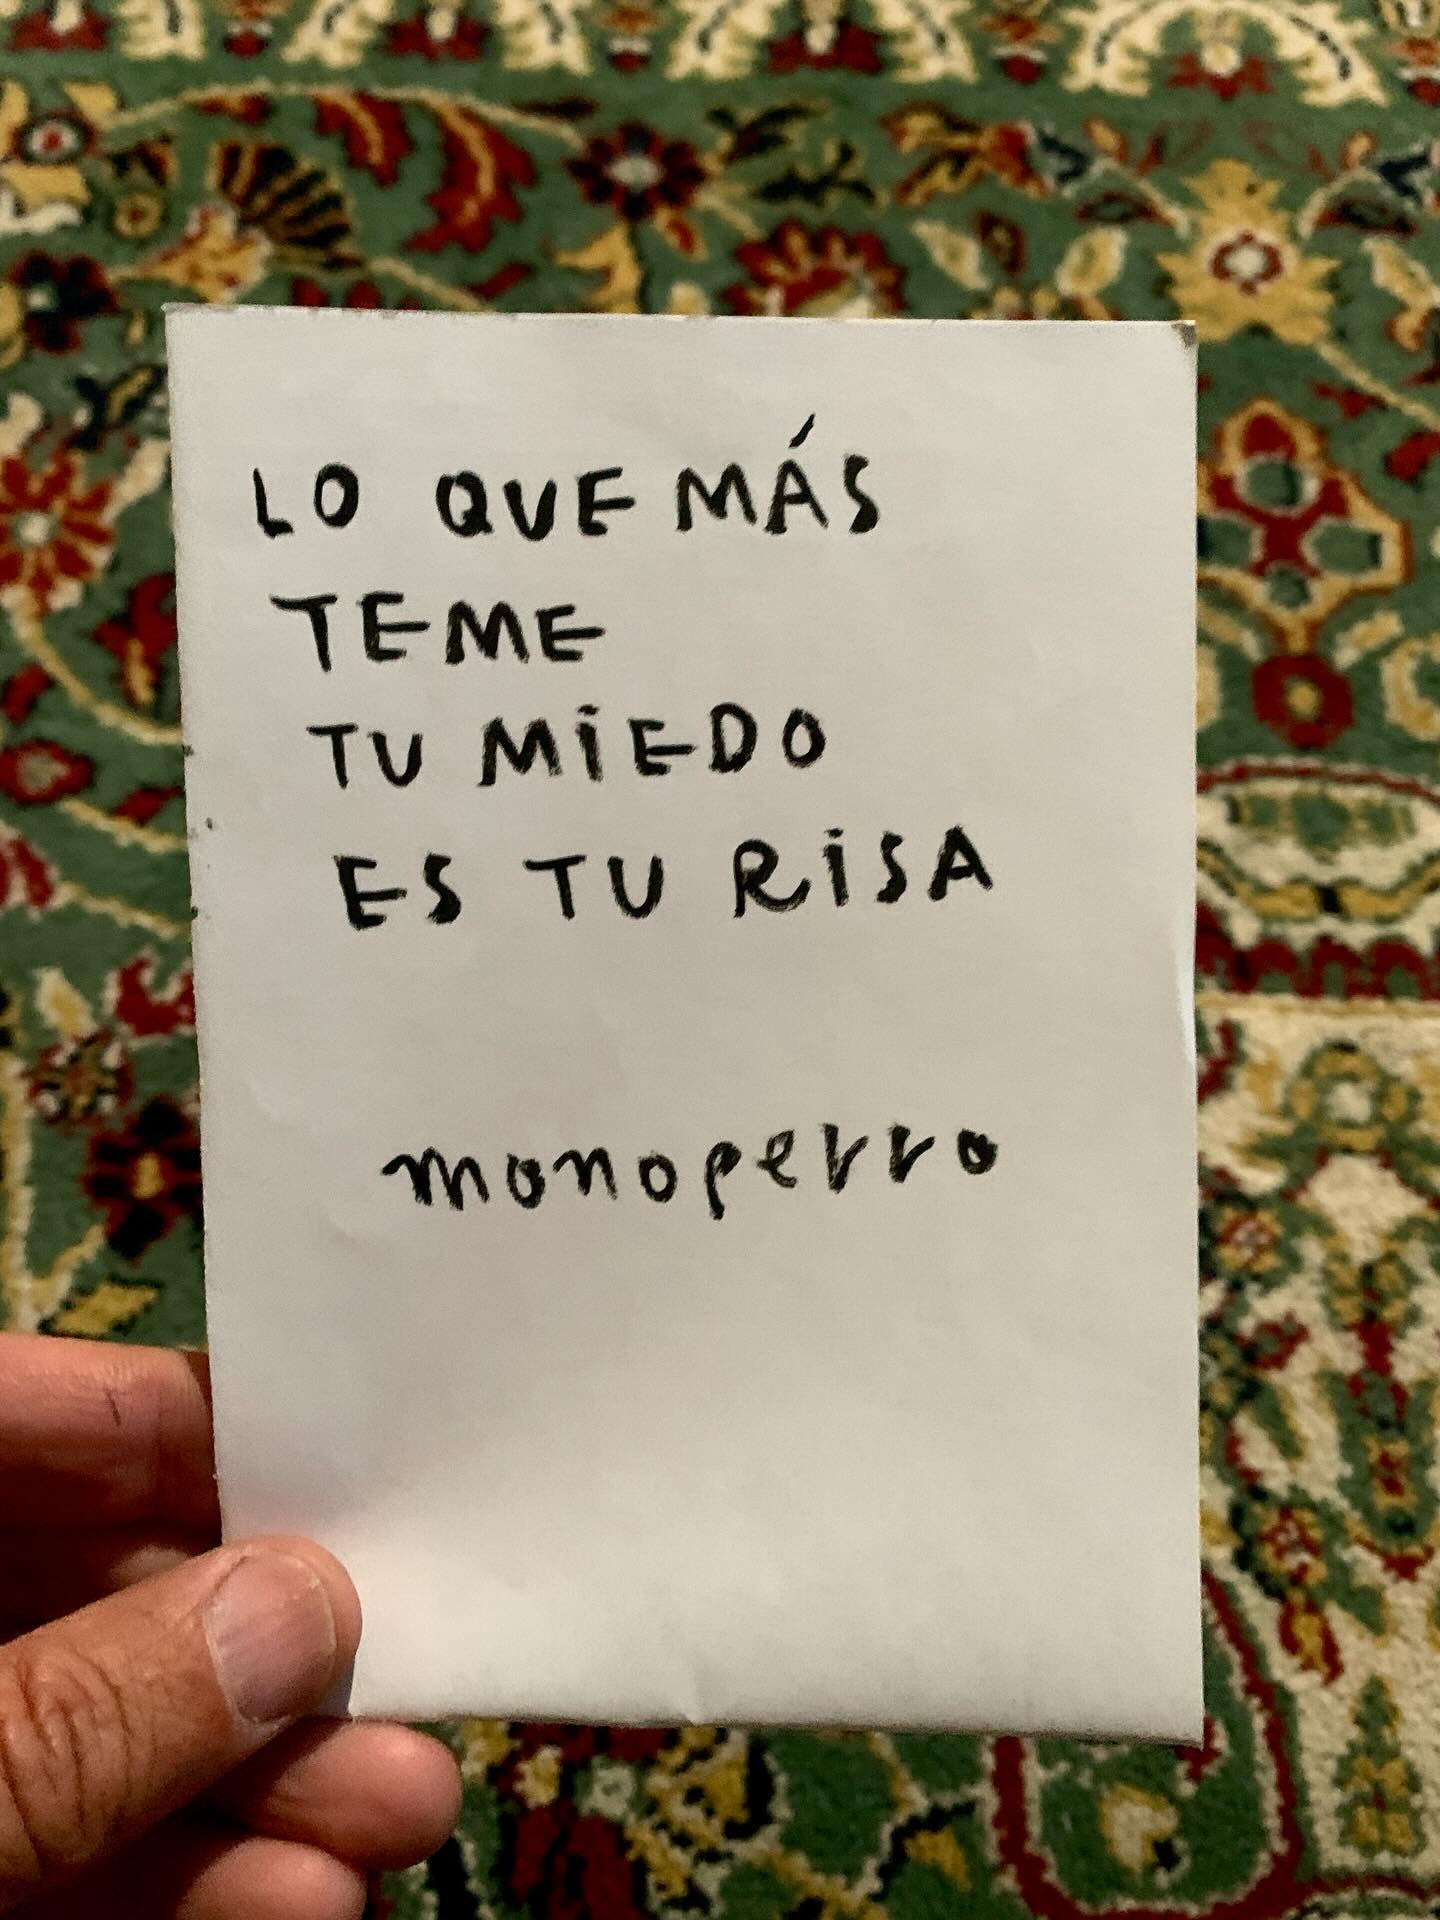 LO QUE MÁS
TEME
TU MiEDO
ES TU RiSA
monoperro